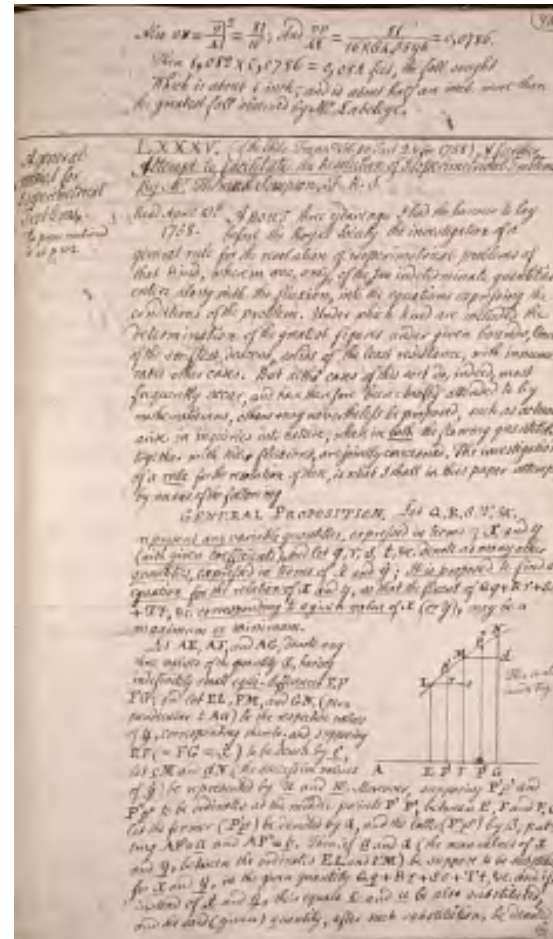 Then 6,082 X 0,0786 = 0,084 feet, the fall sought
Which is about 1 inch; and is about half an inch more than
the greatest fall observed by Mr. Labelye.
A general
method for
Isoperimetrical
Problems.
LXXXV. A further
Attempt to facilitate the Resolution of Isoperimetrical Problems
By Mr. Thomas Simpson, F. R. S.
Read April 13th
1758.
ABOUT three years ago I had the honour to lay
before the Royal Society the investigation of a
general rule for the resolution of isoperimetrical problems of
that kind, wherein one, only, of the two indeterminate quantities
enters along with the fluxion, into the equations expressing the
conditions of the problem. Under which kind are included the
determination of the greatest figures under given bounds, lines
of the swiftest descent, solids of the least resistance, with innumer
able other cases. But altho' cases of this sort do, indeed, most
frequently occur, and have therefore been chiefly attended to by
mathematicians, others may nevertheless be proposed, such as actually
arise in inquiries into nature, wherein both the flowing quantities
together with their fluxions, are jointly concerned. The investigation
of a rule for the resolution of these, is what I shall in this paper attempt
by means of the following
GENERAL PROPOSITION. Let Q, R, S, T, &c.
represent any variable quantities, expressed in terms of x and y
(with given coefficients) and let q, r, s, t, &c. denote as many other
quantities, expressed in terms of ẋ and ẏ; It is proposed to find an
equation for the relation of x and y, so that the fluent of Qq + Rr + Ss
+ Tt, &c. corresponding to a given value of x (or y), may be a
maximum or minimum.
Let AE, AF, and AG, denote any
three values of the quantity x, having
indefinitely small equi-differences EF,
FG; and let EL, FM, and GN, (per
pendicular to AG) be the respective values
of y, corresponding thereto; and supposing
EF (= FG = ẋ) to be denoted by e,
let cM and dN (the successive values
of ẏ) be represented by u and w. Moreover, supposing P'p' and
P"p" to be ordinates at the middle points P' P", between E, F and F, G
let the former (P'p') be denoted by α, and the latter (P"p") by β; put
ting AP' = a and AP" = b. Then if a and α (the mean values of x
and y, between the ordinates EL and FM) be supposed to be substituted
for x and y, in the given quantity Qq + Rr + Ss + Tt, &c. and if,
instead of ẋ and ẏ, their equals e and u be also substituted,
and the said (given) quantity, after such substitution, be denoted
N
M
d
L
A E P' F P" G